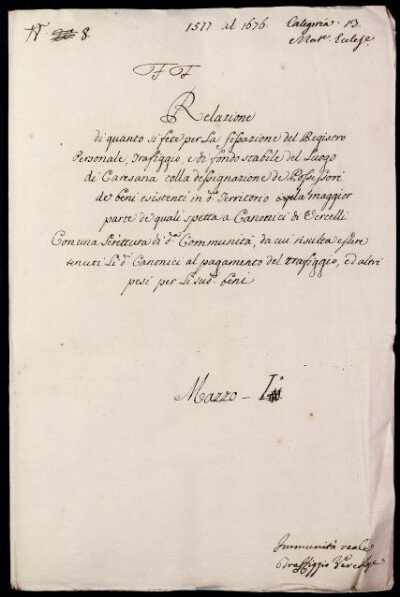 1577 al 1676. Categoria 13.
N.° 8. Mat.e Eccles.e
FF
Relazione
di quanto si fece per la fissazione del Registro
Personale, traffiggo, e di fondo stabile del Luogo
di Caresana colla dessignazione de Possessori
de beni esistenti in d.° Territorio la maggior
parte de quali spetta a Canonici di Vercelli
Con una Scrittura di d.a Communità, da cui risulta essere
tenuti li d.i Canonici al pagamento del traffiggo, ed altri
pesi per li sud.i beni
Mazzo - I.°
Immunità reale